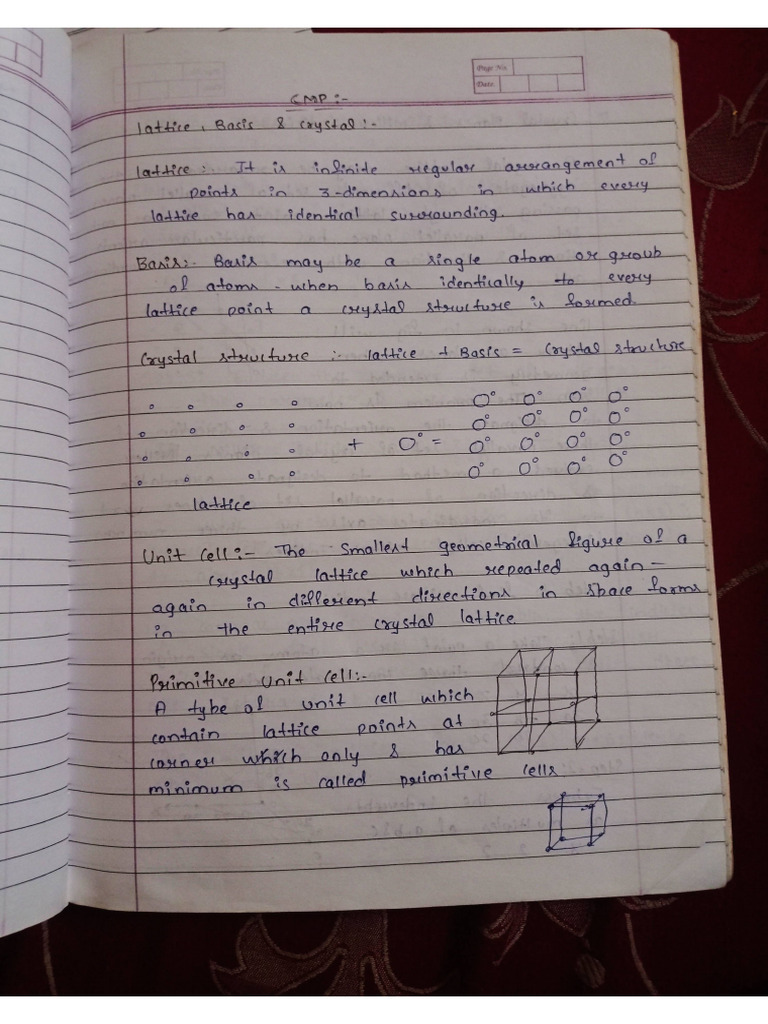 Page No.
Date
CMP :-
Lattice, Basis & Crystal :-
Lattice : It is infinite regular arrangement of
points in 3-dimensions in which every
lattice has identical surrounding.
Basis :- Basis may be a single atom or group
of atoms - when basis identically to every
lattice point a crystal structure is formed.
Crystal structure :- lattice + Basis = Crystal structure
+ =
lattice
Unit Cell :- The smallest geometrical figure of a
crystal lattice which repeated again -
again in different directions in space forms
in the entire crystal lattice.
Primitive Unit Cell :-
A type of unit cell which
contain lattice points at
corner which only & has
minimum is called primitive cells.